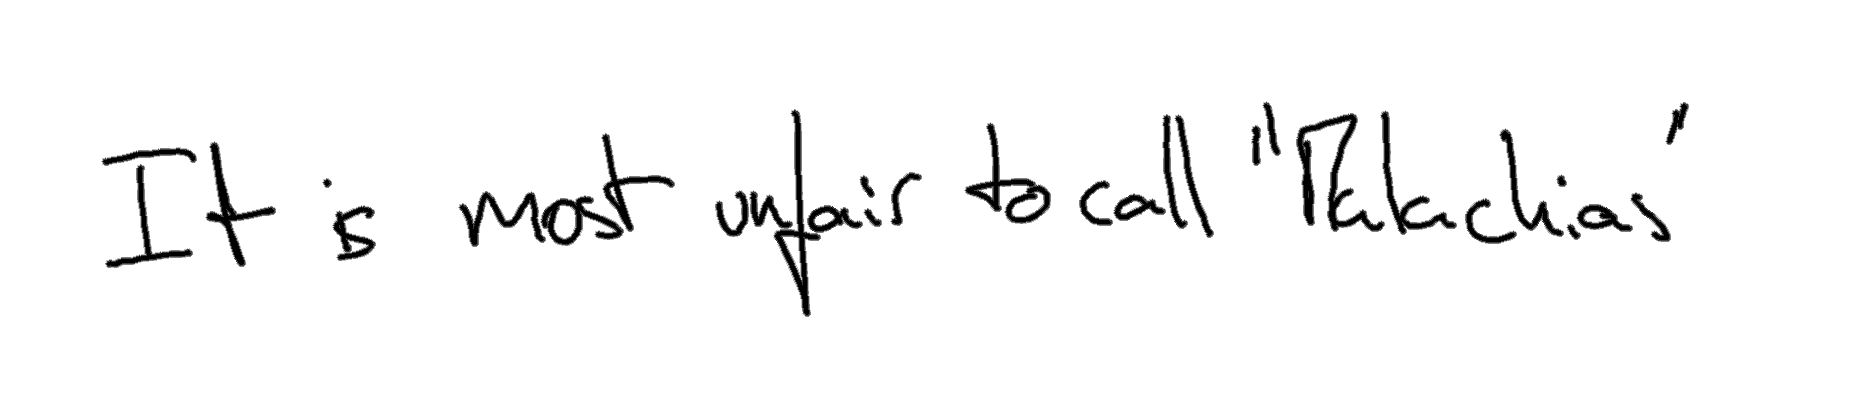 It is most unfair to call "Malachias"